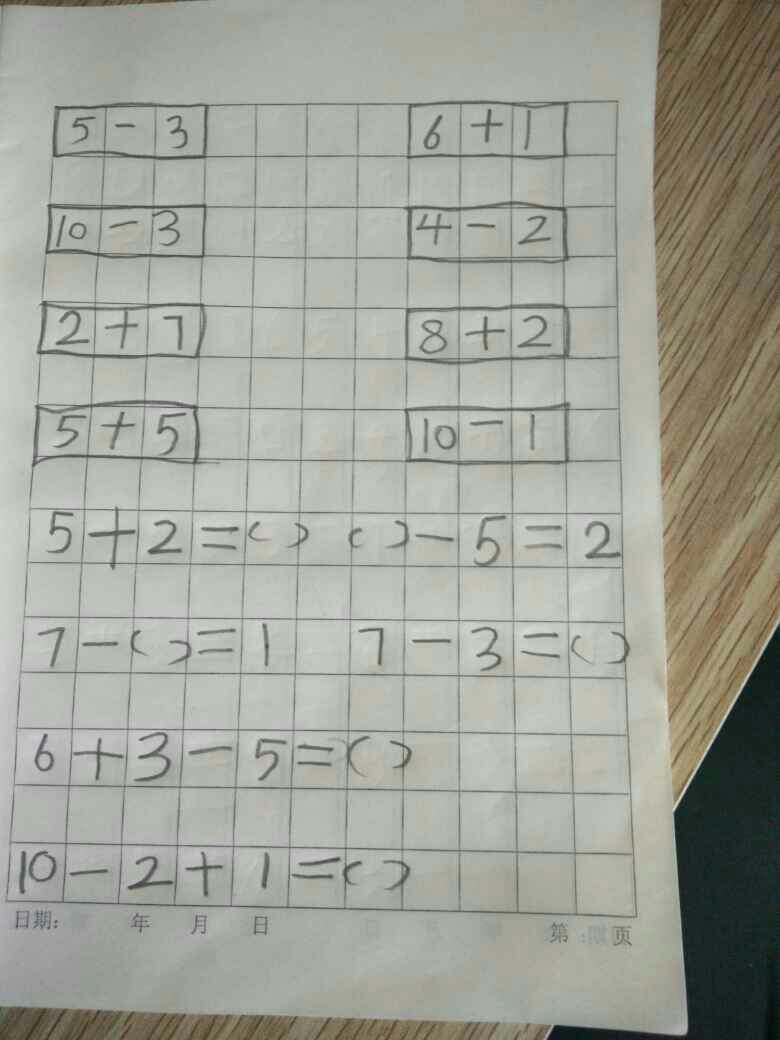 5 - 3 6 + 1
10 - 3 4 - 2
2 + 7 8 + 2
5 + 5 10 - 1
5 + 2 = ( ) ( ) - 5 = 2
7 - ( ) = 1 7 - 3 = ( )
6 + 3 - 5 = ( )
10 - 2 + 1 = ( )
日期： 年 月 日 第 页